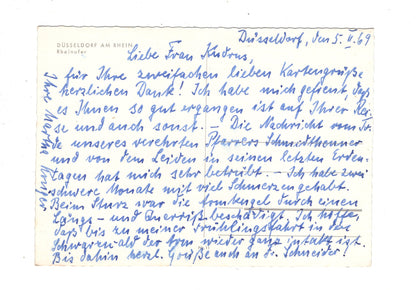 DÜSSELDORF AM RHEIN
Rheinufer
Düsseldorf, den 5. II. 69
Liebe Frau
für Ihre zweifachen lieben Kartengrüße
herzlichen Dank! Ich habe mich gefreut, daß
es Ihnen so gut ergangen ist auf Ihrer Rei-
se und auch sonst. – Die Nachricht vom To-
de unseres verehrten Pfarrers Schmidthenner
und von dem Leiden in seinen letzten Erden-
tagen hat mich sehr betrübt. – Ich habe zwei
schwere Monate mit viel Schmerzen gehabt.
Beim Sturz war die Armkugel durch einen
Längs- und Querriß beschädigt. Ich hoffe,
daß bis zu meiner Frühlingsfahrt in den
Schwarzwald der Arm wieder ganz intakt ist.
Bis dahin herzl. Grüße auch an Fr. Schneider!
Ihre Martha